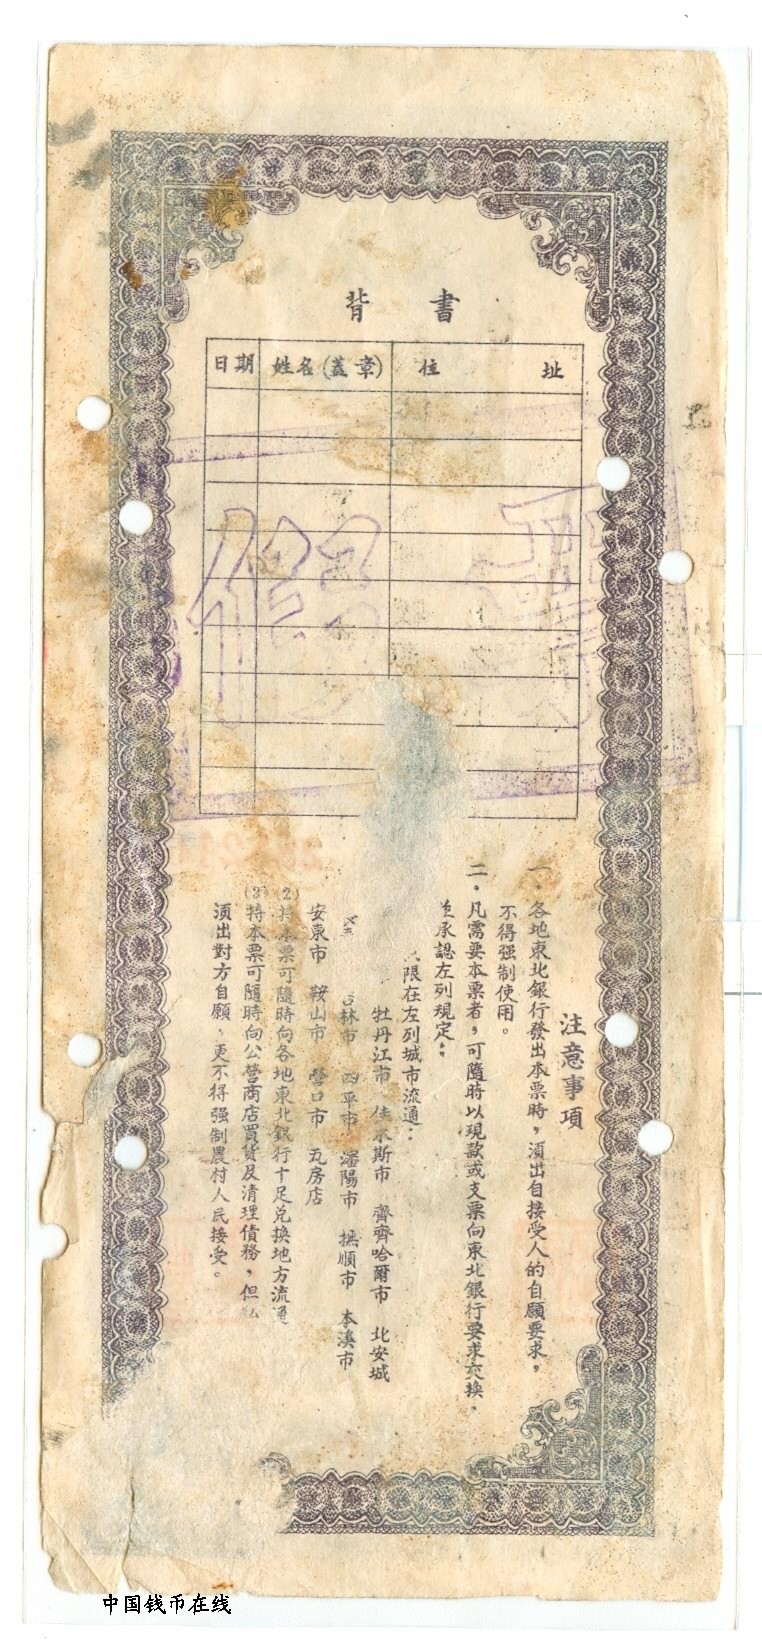 背書
日期 姓名(蓋章) 住址
假票
注意事項
一、各地東北銀行發出本票時，須出自接受人的自願要求，
不得强制使用。
二、凡需要本票者，可隨時以現款或支票向東北銀行要求交換，
承認左列規定：
限在左列城市流通：
牡丹江市 佳木斯市 齊齊哈爾市 北安城
吉林市 四平市 瀋陽市 撫順市 本溪市
安東市 鞍山市 營口市 瓦房店
(2)持本票可隨時向各地東北銀行十足兌換地方流通
(3)持本票可隨時向公營商店買貨及清理債務，但私
須出對方自願，更不得强制農村人民接受。
中国钱币在线